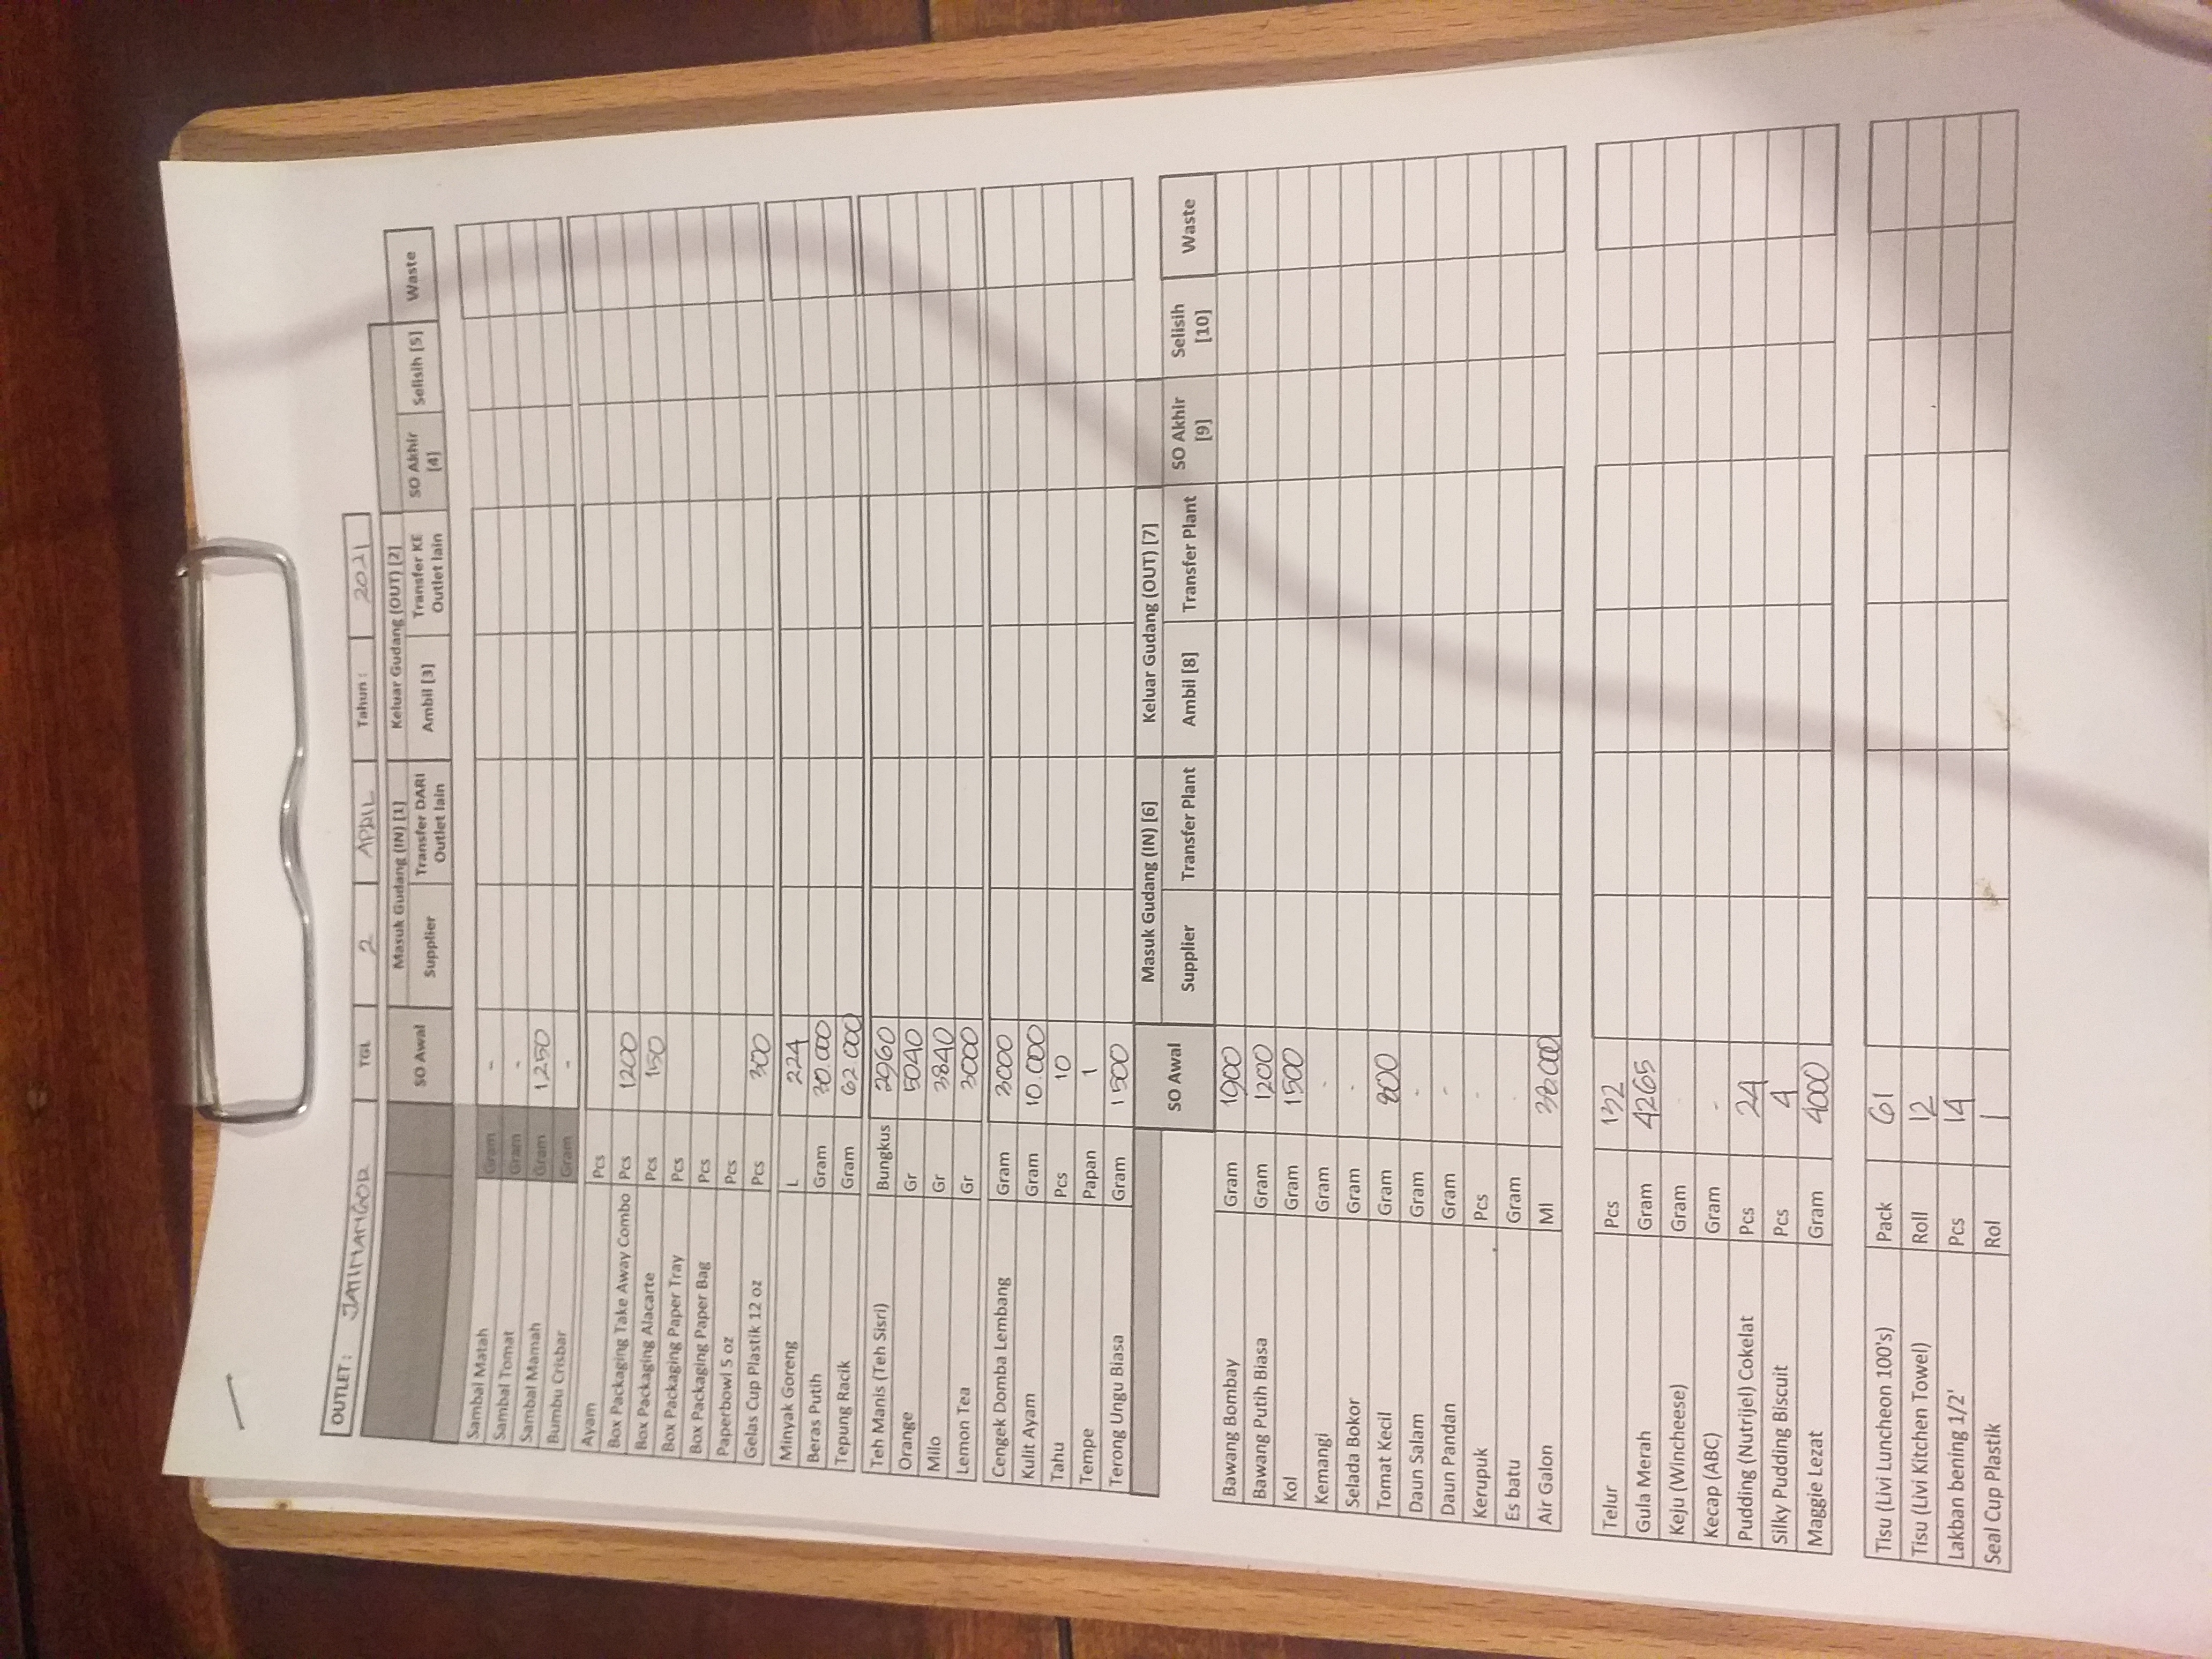 OUTLET : JATINANGOR TGL 2 APRIL Tahun : 2021
SO Awal Masuk Gudang (IN) [1] Keluar Gudang (OUT) [2] SO Akhir [4] Selisih [5] Waste
Supplier Transfer DARI Outlet lain Ambil [3] Transfer KE Outlet lain
Sambal Matah Gram -
Sambal Tomat Gram -
Sambal Mamah Gram 1250
Bumbu Crisbar Gram -
Ayam Pcs
Box Packaging Take Away Combo Pcs 1200
Box Packaging Alacarte Pcs 150
Box Packaging Paper Tray Pcs
Box Packaging Paper Bag Pcs
Paperbowl 5 oz Pcs
Gelas Cup Plastik 12 oz Pcs 300
Minyak Goreng L 224
Beras Putih Gram 30.000
Tepung Racik Gram 62.000
Teh Manis (Teh Sisri) Bungkus 2960
Orange Gr 5040
Milo Gr 3840
Lemon Tea Gr 3000
Cengek Domba Lembang Gram 3000
Kulit Ayam Gram 10.000
Tahu Pcs 10
Tempe Papan 1
Terong Ungu Biasa Gram 1500
SO Awal Masuk Gudang (IN) [6] Keluar Gudang (OUT) [7] SO Akhir [9] Selisih [10] Waste
Supplier Transfer Plant Ambil [8] Transfer Plant
Bawang Bombay Gram 1900
Bawang Putih Biasa Gram 1200
Kol Gram 1500
Kemangi Gram -
Selada Bokor Gram -
Tomat Kecil Gram 800
Daun Salam Gram -
Daun Pandan Gram -
Kerupuk Pcs -
Es batu Gram -
Air Galon Ml 38.000
Telur Pcs 132
Gula Merah Gram 4265
Keju (Wincheese) Gram -
Kecap (ABC) Gram -
Pudding (Nutrijel) Cokelat Pcs 24
Silky Pudding Biscuit Pcs 4
Maggie Lezat Gram 4000
Tisu (Livi Luncheon 100's) Pack 61
Tisu (Livi Kitchen Towel) Roll 12
Lakban bening 1/2' Pcs 14
Seal Cup Plastik Rol 1